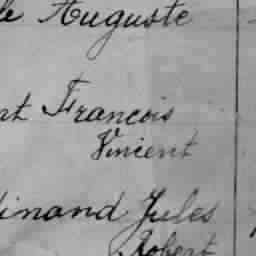 le Auguste
nt Francois
Vincent
dinand Jules
Robert